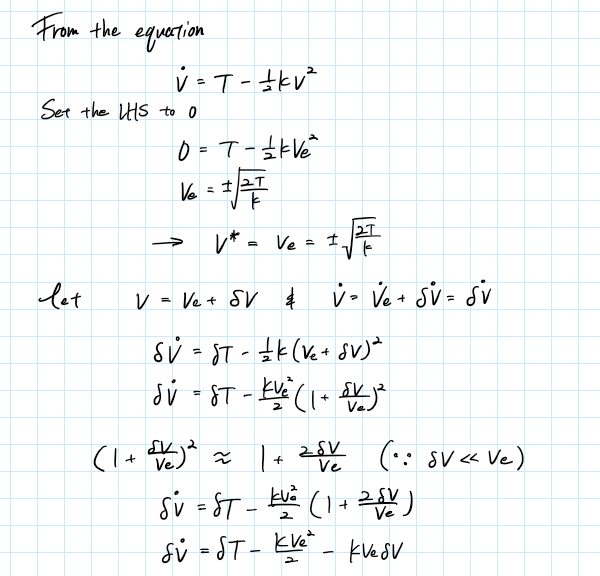 From the equation
v̇ = T - ½kv²
Set the LHS to 0
0 = T - ½kVe²
Ve = ±√(2T/k)
→ V* = Ve = ±√(2T/k)
let V = Ve + δV & V̇ = V̇e + δV̇ = δV̇
δV̇ = δT - ½k(Ve + δV)²
δV̇ = δT - kVe²/2 (1 + δV/Ve)²
(1 + δV/Ve)² ≈ 1 + 2δV/Ve (∵ δV << Ve)
δV̇ = δT - kVe²/2 (1 + 2δV/Ve)
δV̇ = δT - kVe²/2 - kVeδV